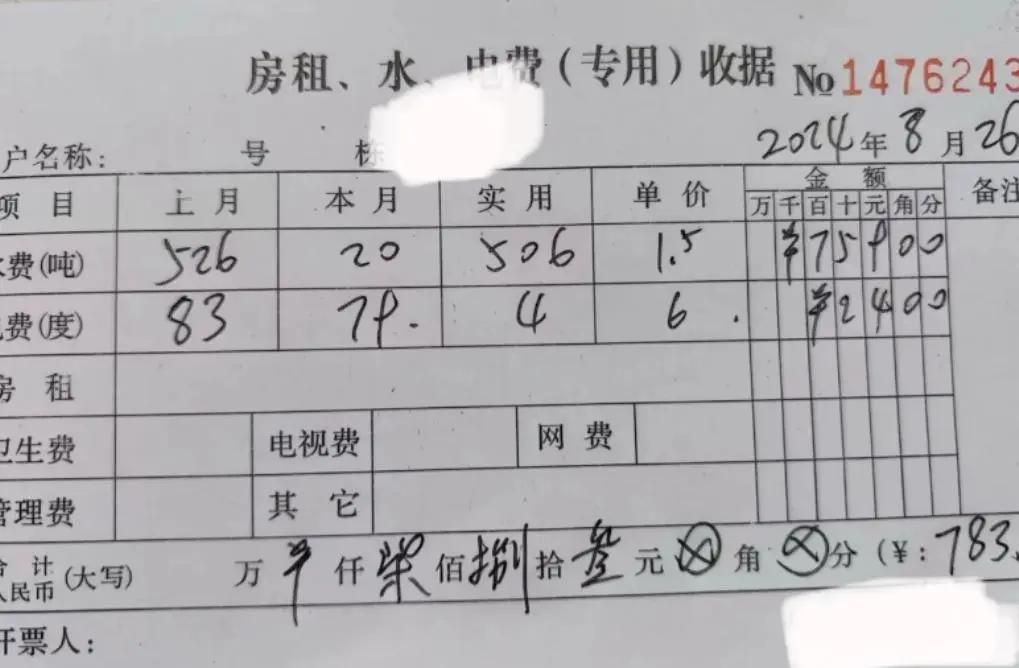 房租、水、电费(专用)收据 No 1476243
户名称: 号 栋 2024年8月26
项目 上月 本月 实用 单价 金额 备注
万 千 百 十 元 角 分
水费(吨) 526 20 506 1.5 ¥75900
电费(度) 83 79. 4 6. ¥2400
房租
卫生费 电视费 网费
管理费 其它
合计人民币(大写) 万 ¥ 仟 柒 佰 捌 拾 叁 元 ⊗ 角 ⊗ 分(¥:783.
开票人: